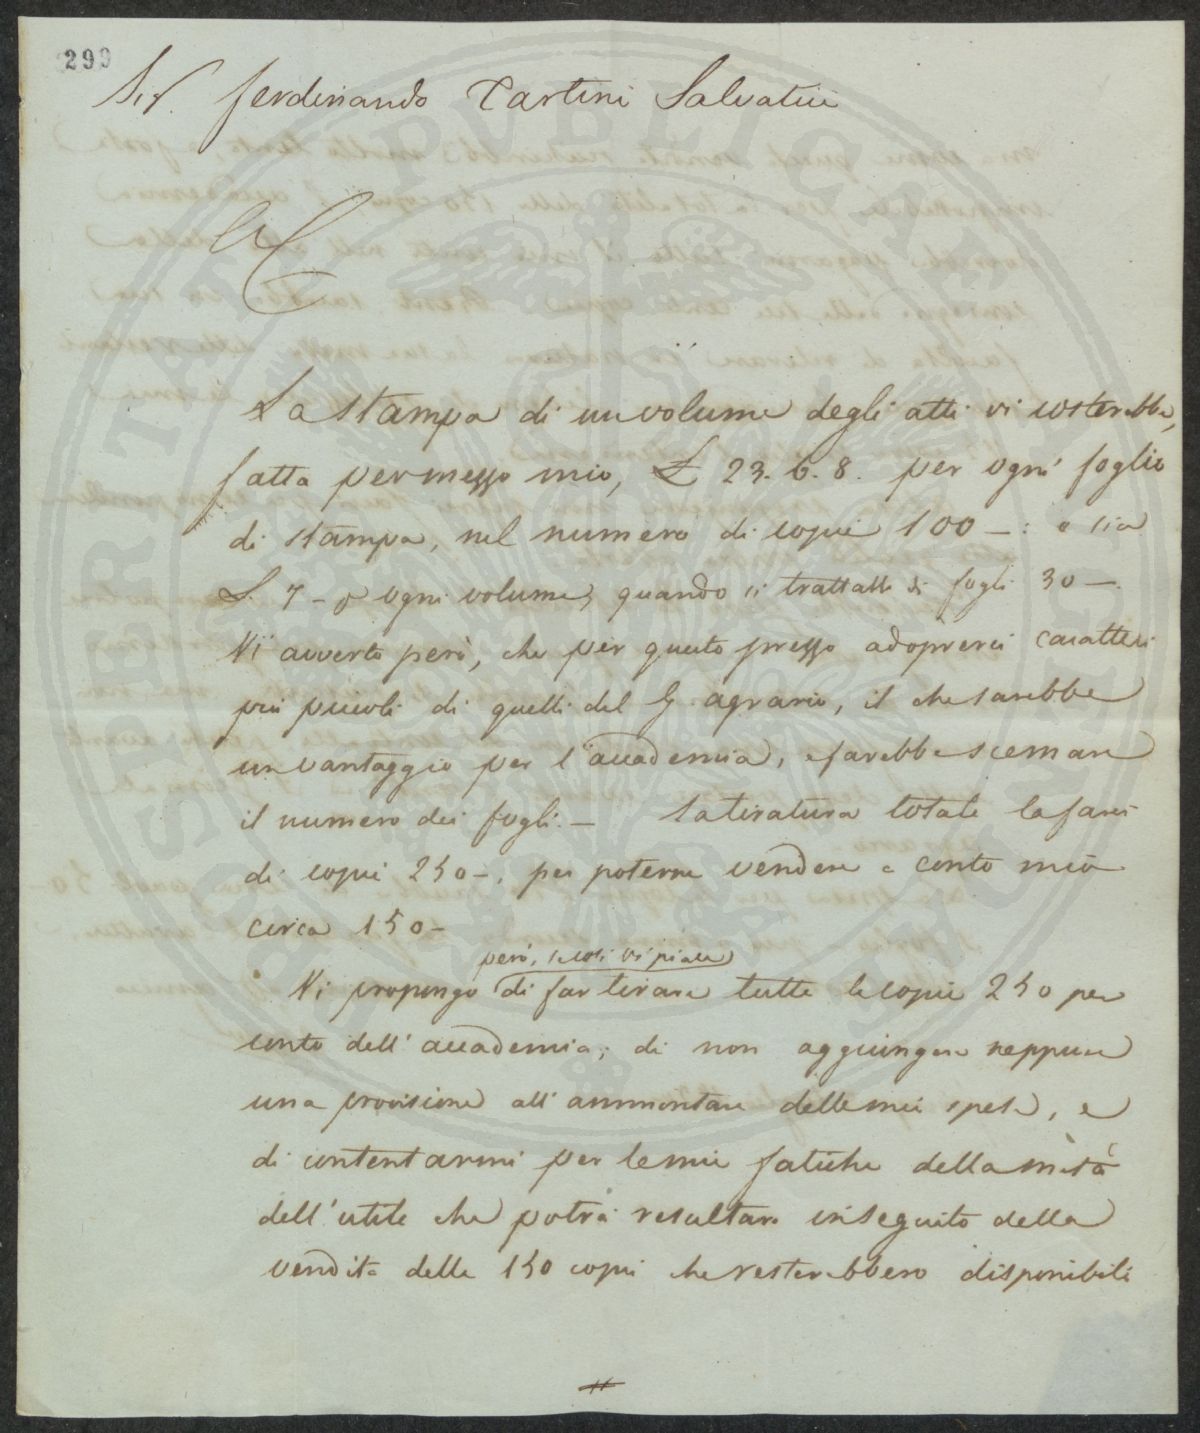 299
Sig. Ferdinando Tartini Salvatici
AC
La stampa di un volume degli atti vi costerebbe,
fatta per mezzo mio, £ 23. 6. 8. per ogni foglio
di stampa, nel numero di copie 100 —: o sia
£. 7 – ogni volume, quando si trattasse di fogli 30 —.
Vi avverto però, che per questo prezzo adoprerei caratteri
più piccoli di quelli del G. agrario, il che sarebbe
un vantaggio per l'accademia, e farebbe scemare
il numero dei fogli. — La tiratura totale la farei
di copie 250 –, per poterne vendere a conto mio
circa 150 –
però, se così vi piace
Vi propongo di far tirare tutte le copie 250 per
conto dell'accademia; di non aggiungere neppure
una provisione all'ammontare delle mie spese, e
di contentarmi per le mie fatiche della metà
dell'utile che potrà resultare in seguito della
vendita delle 150 copie che resterebbero disponibili